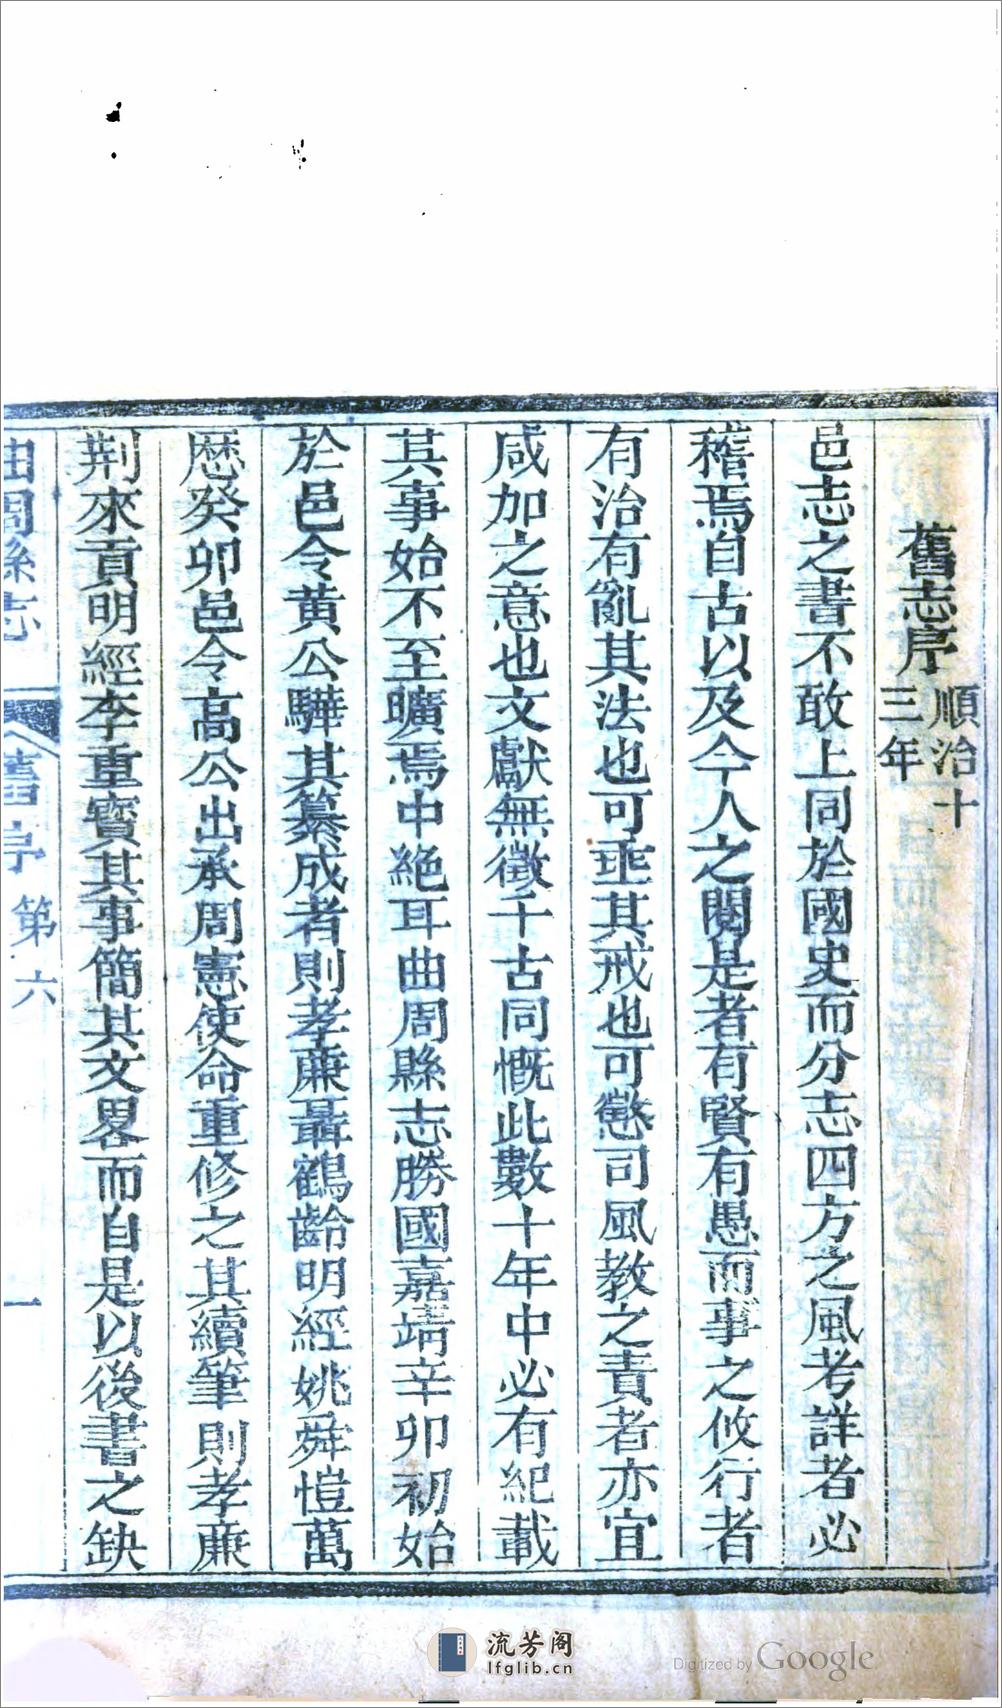 舊志序順治十三年
邑志之書不敢上同於國史而分志四方之風考詳者必
稽焉自古以及今人之閱是者有賢有愚而事之攸行者
有治有亂其法也可垂其戒也可懲司風教之責者亦宜
咸加之意也文獻無徵千古同慨此數十年中必有紀載
其事始不至曠焉中絶耳曲周縣志勝國嘉靖辛卯初始
於邑令黃公驊其纂成者則孝亷聶鶴齡明經姚舜愷萬
歷癸卯邑令高公出承周憲使命重修之其續筆則孝亷
荆來貢明經李重寳其事簡其文畧而自是以後書之缺
曲周縣志 舊序 第六 一
流芳阁
lfglib.cn
Digitized by Google